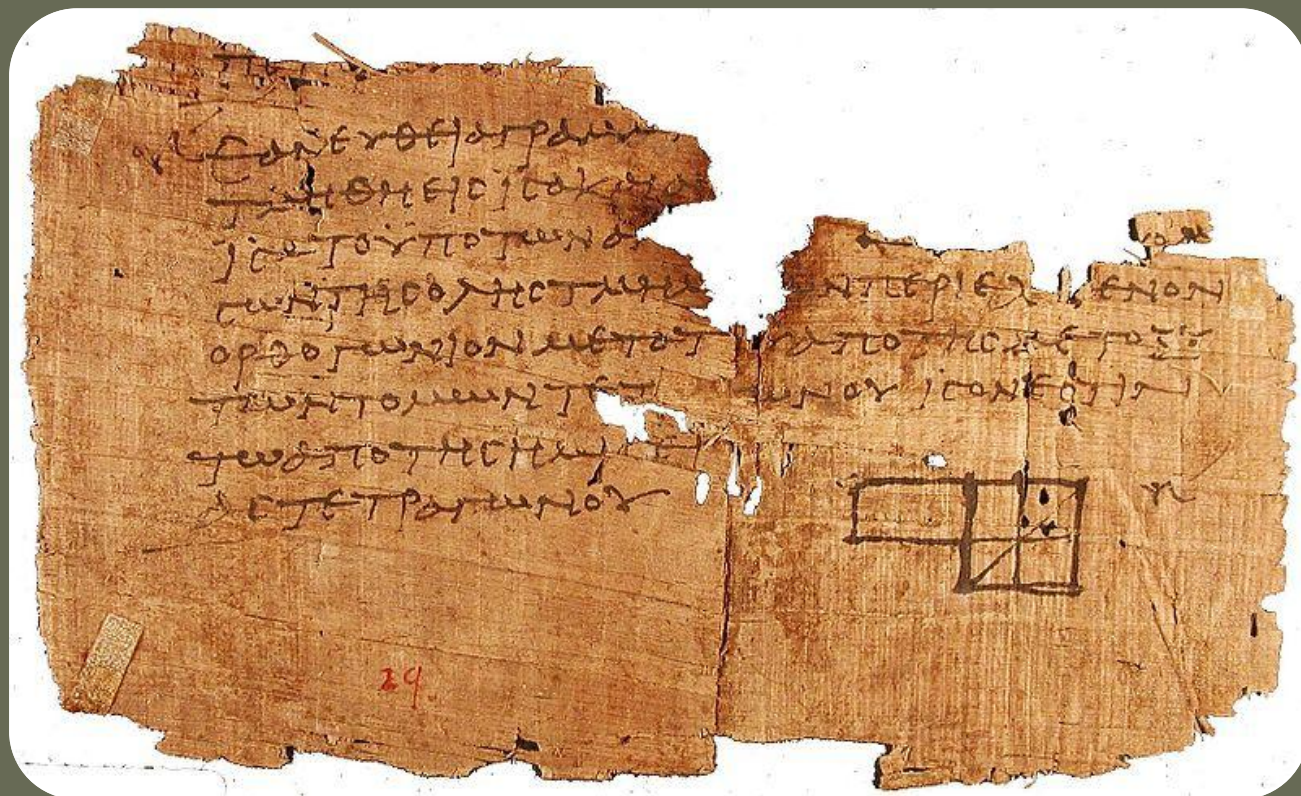 ΕΑΝΕΥΘΕΙΑΓΡΑΜ
ΤΜΗΘΗΕΙϹΙϹΑΚΑΙΑ
ΙϹΑΤΟΥΠΟΤΩΝΑ
ϹΩΝΤΗϹΟΛΗϹΤΜΗΜ ΩΝΠΕΡΙΕΧ ΜΕΝΟΝ
ΟΡΘΟΓΩΝΙΟΝΜΕΤΑΤ ΥΑΠΟΤΗϹΜΕΤΟΞΥ
ΤΩΝΤΟΜΩΝΤΕΤ ΩΝΟΥΙϹΟΝΕϹΤΙΝ
ΤΩΑΠΟΤΗϹΗΜΙϹΕΙ
ΑϹΤΕΤΡΑΓΩΝΟΥ
29